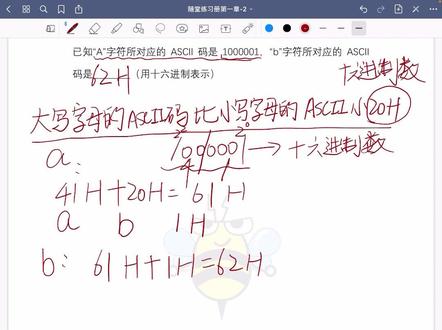 随堂练习册第一章-2
已知“A”字符所对应的 ASCII 码是 1000001，“b”字符所对应的 ASCII
码是 62H (用十六进制表示)
十六进制数
大写字母的ASCII码比小写字母的ASCII小20H
a: 1000001 → 十六进制数
41
41H+20H=61H
a b 1H
b: 61H+1H=62H